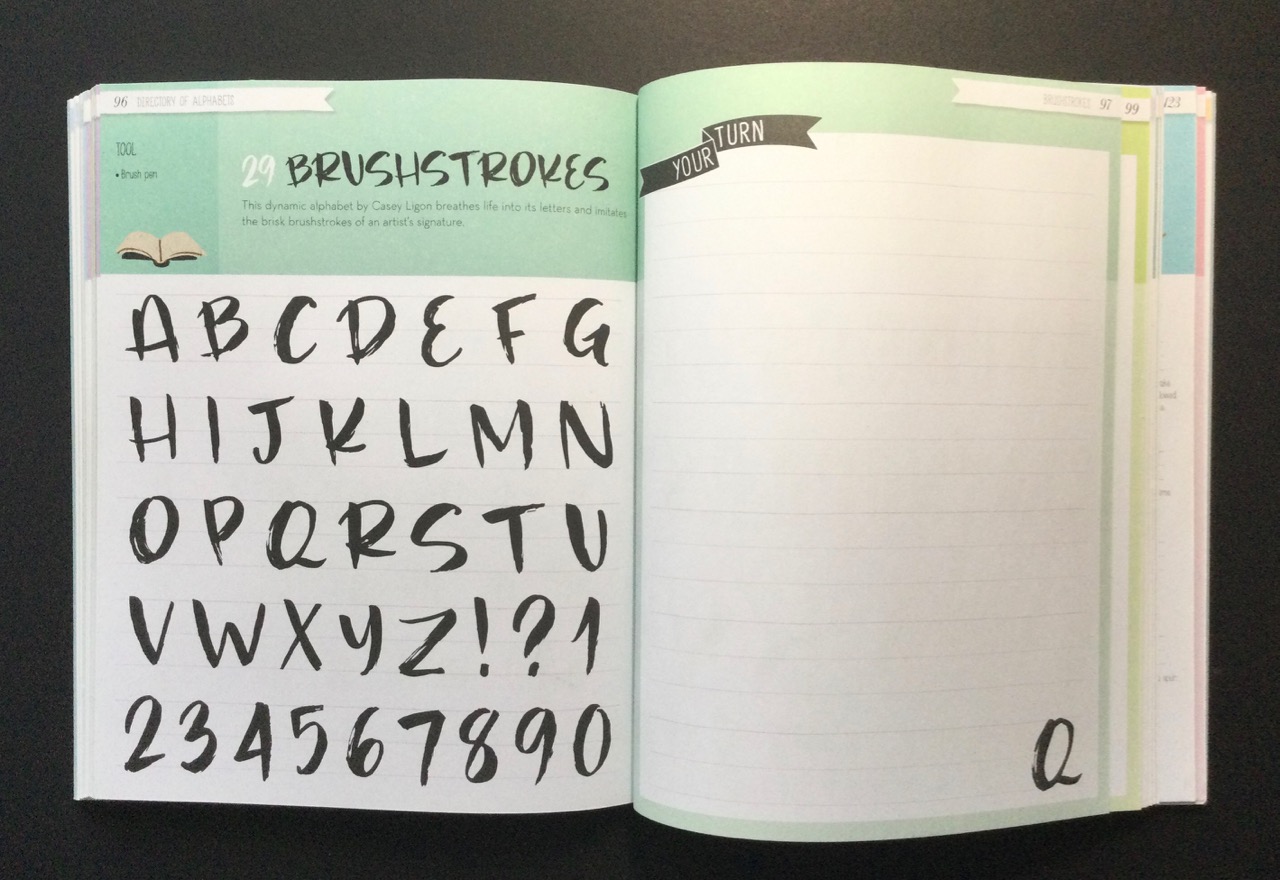 96 DIRECTORY OF ALPHABETS
TOOL
• Brush pen
29 BRUSHSTROKES
This dynamic alphabet by Casey Ligon breathes life into its letters and imitates
the brisk brushstrokes of an artist's signature.
A B C D E F G
H I J K L M N
O P Q R S T U
V W X Y Z ! ? 1
2 3 4 5 6 7 8 9 0
BRUSHSTROKES 97
YOUR TURN
Q
99
123